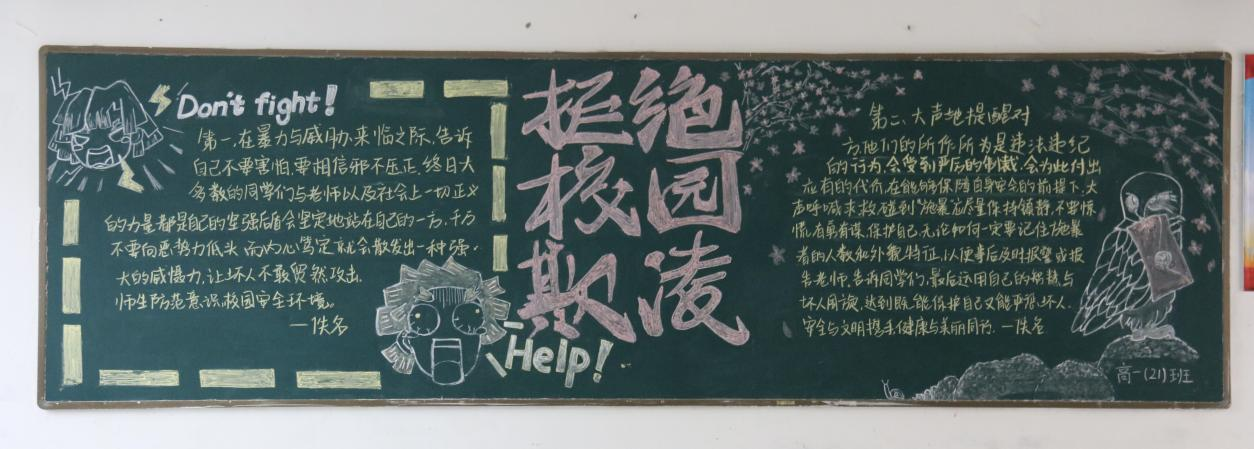 Don't fight!
第一,在暴力与威胁来临之际,告诉
自己不要害怕,要相信邪不压正,终日大
多数的同学们与老师以及社会上一切正义
的力量都是自己的坚强后盾会坚定地站在自己的一方,千万
不要向恶势力低头,而内心笃定就会散发出一种强
大的威慑力,让坏人不敢贸然攻击.
师生防范意识,校园安全环境。
—佚名
Help!
拒绝
校园
欺凌
第二、大声地提醒对
方他们的所作所为是违法违纪
的行为,会受到严厉的制裁,会为此付出
应有的代价,在能够保障自身安全的前提下,大
声呼喊求救,碰到施暴应尽量保持镇静,不要惊
慌,有勇有谋,保护自己,无论如何一定要记住施暴
者的人数和外貌特征,以便事后及时报警或报
告老师,告诉同学们,最后运用自己的智慧与
坏人周旋,达到既能保护自己又能吓退坏人.
安全与文明携手,健康与美丽同行.—佚名
高一(21)班